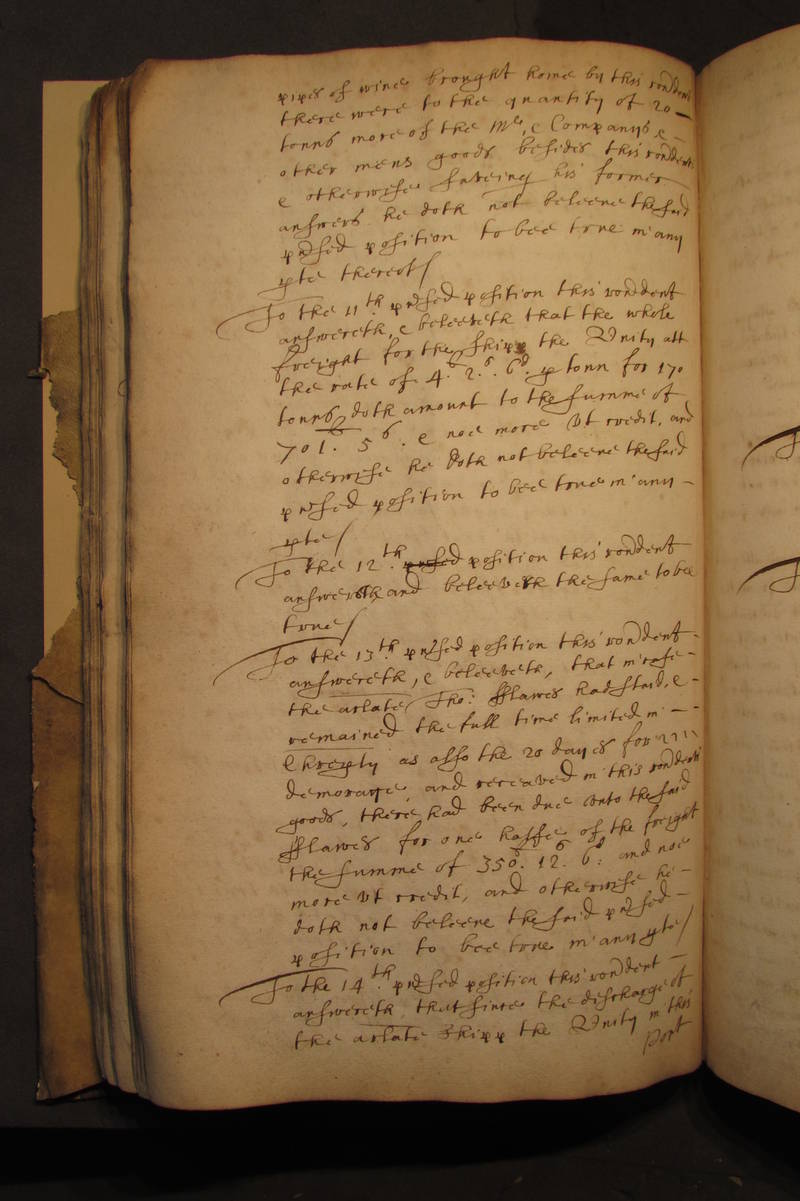 pipes of wine brought home by this rondent
there were to the quantity of 20 —
tonns more of the Mr, e Companys e —
other mens goods besides this rondents
e otherwise saveing his former
answers he doth not beleeve the said
pnsed position to bee true in any
pte thereof /
To the 11th pnsed position this rondent
answereth, e beleeveth that the whole
freight for the shipp the Unity att
the rate of 4li 2s 6d p tonn for 170
tonns doth amount to the summe of
701li. 5s. e noe more Ut credit, and
otherwise he doth not beleeve the said
pnsed position to bee true in any —
pte /
To the 12th position this rondent
answereth and beleeveth the same to bee
true /
To the 13th pnsed position this rondent —
answereth, e beleeveth, that in case —
the arlate Tho: fflawes had staid, e —
remained the full time limited in — —
Chrepty as also the 20 dayes for
demorage, and receaved in this rondents
goods, there had been due unto the said
fflawes for one halfe of the freight
the summe of 350li. 12s. 6d: and noe
more Ut credit, and otherwise he —
doth not beleeve the said pnsed —
position to bee true in any pte /
To the 14th pnsed position this rondent —
answereth that since the discharge of
the arlate shipp the Unity in this
Port